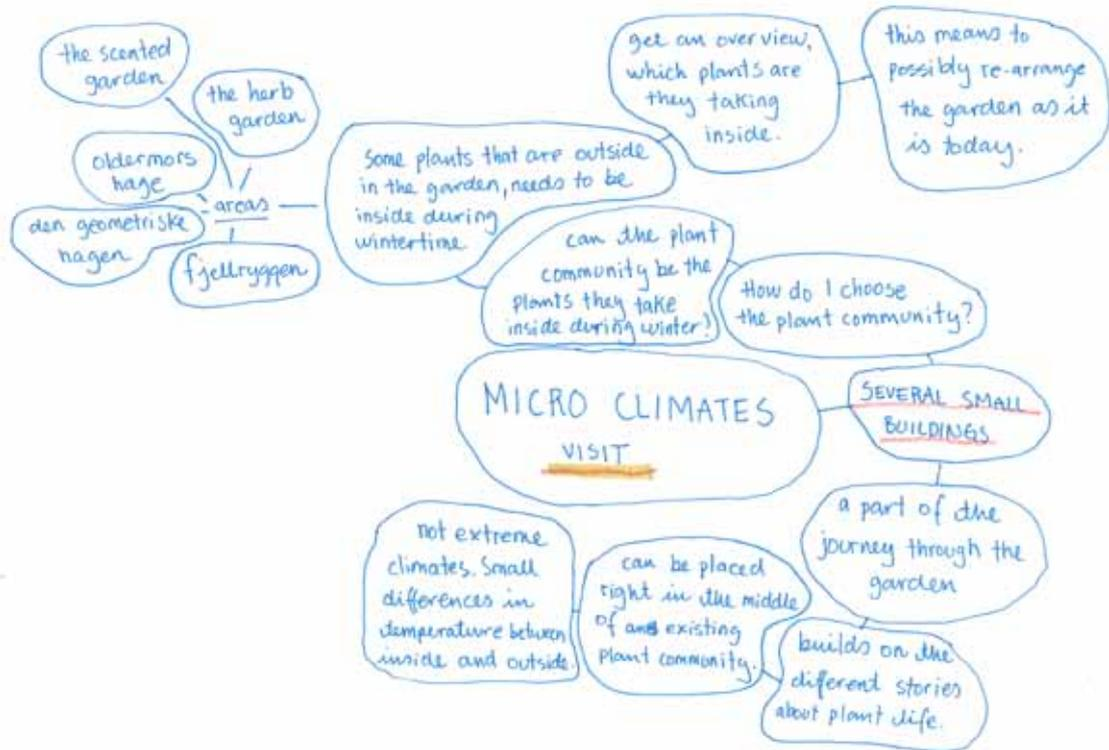 the scented
garden
the herb
garden
oldermors
hage
den geometriske
hagen
fjellryggen
areas
some plants that are outside
in the garden, needs to be
inside during
wintertime
get an overview,
which plants are
they taking
inside.
this means to
possibly re-arrange
the garden as it
is today.
can the plant
community be the
plants they take
inside during winter?
How do I choose
the plant community?
MICRO CLIMATES
VISIT
SEVERAL SMALL
BUILDINGS
a part of the
journey through the
garden
builds on the
different stories
about plant life.
can be placed
right in the middle
of an existing
plant community.
not extreme
climates. Small
differences in
temperature between
inside and outside.